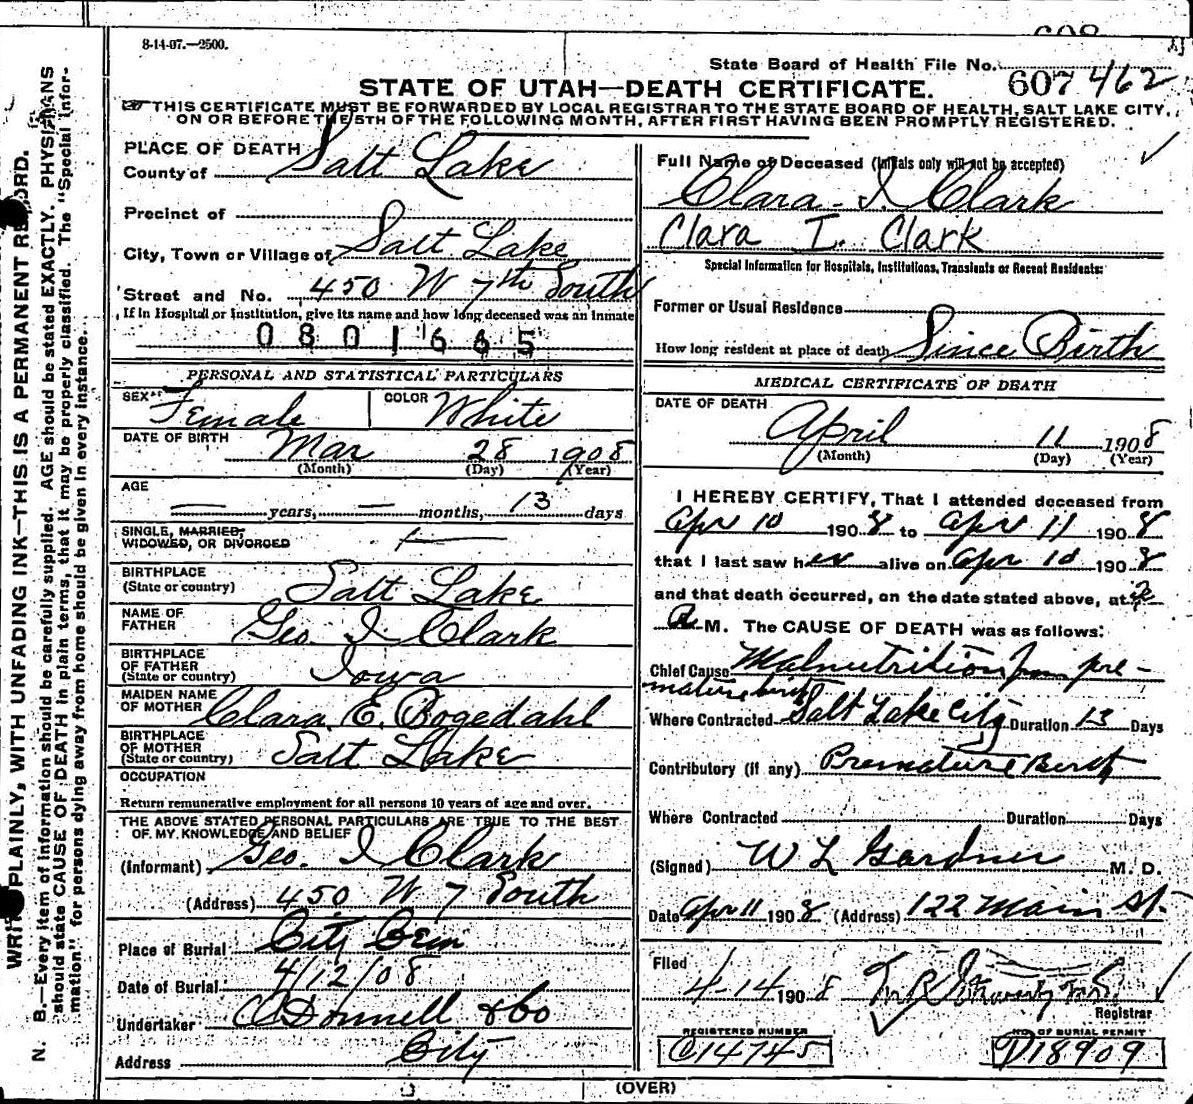 608
8-14-07.—2500.
State Board of Health File No. 607 462
STATE OF UTAH—DEATH CERTIFICATE.
THIS CERTIFICATE MUST BE FORWARDED BY LOCAL REGISTRAR TO THE STATE BOARD OF HEALTH, SALT LAKE CITY,
ON OR BEFORE THE 5TH OF THE FOLLOWING MONTH, AFTER FIRST HAVING BEEN PROMPTLY REGISTERED.
WRITE PLAINLY, WITH UNFADING INK—THIS IS A PERMANENT RECORD.
N. B.—Every item of information should be carefully supplied. AGE should be stated EXACTLY. PHYSICIANS
should state CAUSE OF DEATH in plain terms, that it may be properly classified. The "Special Infor-
mation" for persons dying away from home should be given in every instance.
PLACE OF DEATH
County of Salt Lake
Precinct of
City, Town or Village of Salt Lake
Street and No. 450 W 7th South
If in Hospital or Institution, give its name and how long deceased was an inmate
0801665
PERSONAL AND STATISTICAL PARTICULARS
SEX Female COLOR White
DATE OF BIRTH Mar 28 1908
(Month) (Day) (Year)
AGE
— years, — months, 13 days
SINGLE, MARRIED,
WIDOWED, OR DIVORCED
BIRTHPLACE
(State or country) Salt Lake
NAME OF
FATHER Geo. I Clark
BIRTHPLACE
OF FATHER
(State or country) Iowa
MAIDEN NAME
OF MOTHER Clara E. Bogedahl
BIRTHPLACE
OF MOTHER
(State or country) Salt Lake
OCCUPATION
Return remunerative employment for all persons 10 years of age and over.
THE ABOVE STATED PERSONAL PARTICULARS ARE TRUE TO THE BEST
OF MY KNOWLEDGE AND BELIEF
(Informant) Geo. I Clark
(Address) 450 W 7 South
Place of Burial City Cem
Date of Burial 4/12/08
Undertaker O'Donnell & Co
Address City
Full Name of Deceased (Initials only will not be accepted)
Clara I. Clark
Clara I. Clark
Special Information for Hospitals, Institutions, Transients or Recent Residents:
Former or Usual Residence
How long resident at place of death Since Birth
MEDICAL CERTIFICATE OF DEATH
DATE OF DEATH
April 11 1908
(Month) (Day) (Year)
I HEREBY CERTIFY, That I attended deceased from
Apr 10 1908 to Apr 11 1908
that I last saw her alive on Apr 10 1908
and that death occurred, on the date stated above, at 2
A. M. The CAUSE OF DEATH was as follows:
Chief Cause Malnutrition from pre-
mature birth
Where Contracted Salt Lake City Duration 13 Days
Contributory (if any) Premature Birth
Where Contracted Duration Days
(Signed) W L Gardner M. D.
Date Apr 11 1908 (Address) 122 Main St.
Filed
4-14 1908
Registrar
REGISTERED NUMBER
C14745
NO. OF BURIAL PERMIT
D18909
(OVER)